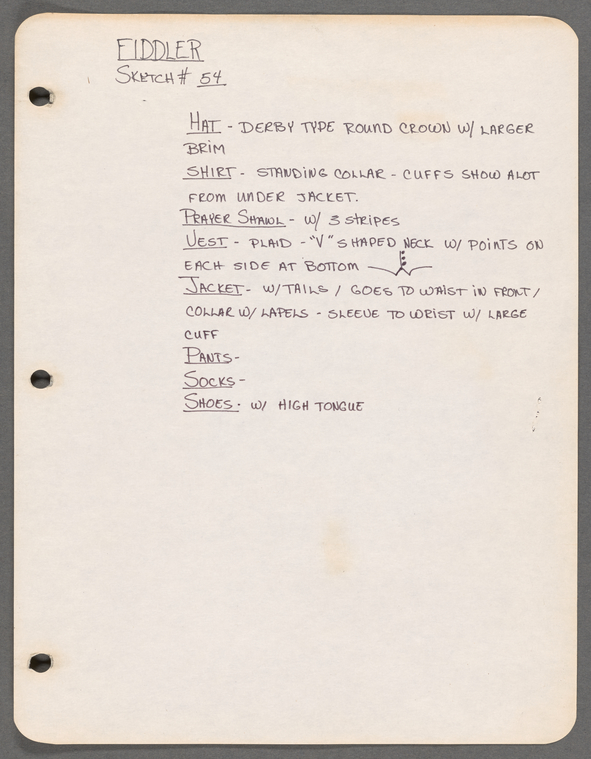 FIDDLER
SKETCH # 54
HAT - DERBY TYPE ROUND CROWN W/ LARGER
BRIM
SHIRT - STANDING COLLAR - CUFFS SHOW ALOT
FROM UNDER JACKET.
PRAYER SHAWL - W/ 3 STRIPES
VEST - PLAID - "V" SHAPED NECK W/ POINTS ON
EACH SIDE AT BOTTOM
JACKET - W/TAILS / GOES TO WAIST IN FRONT /
COLLAR W/ LAPELS - SLEEVE TO WRIST W/ LARGE
CUFF
PANTS -
SOCKS -
SHOES - W/ HIGH TONGUE